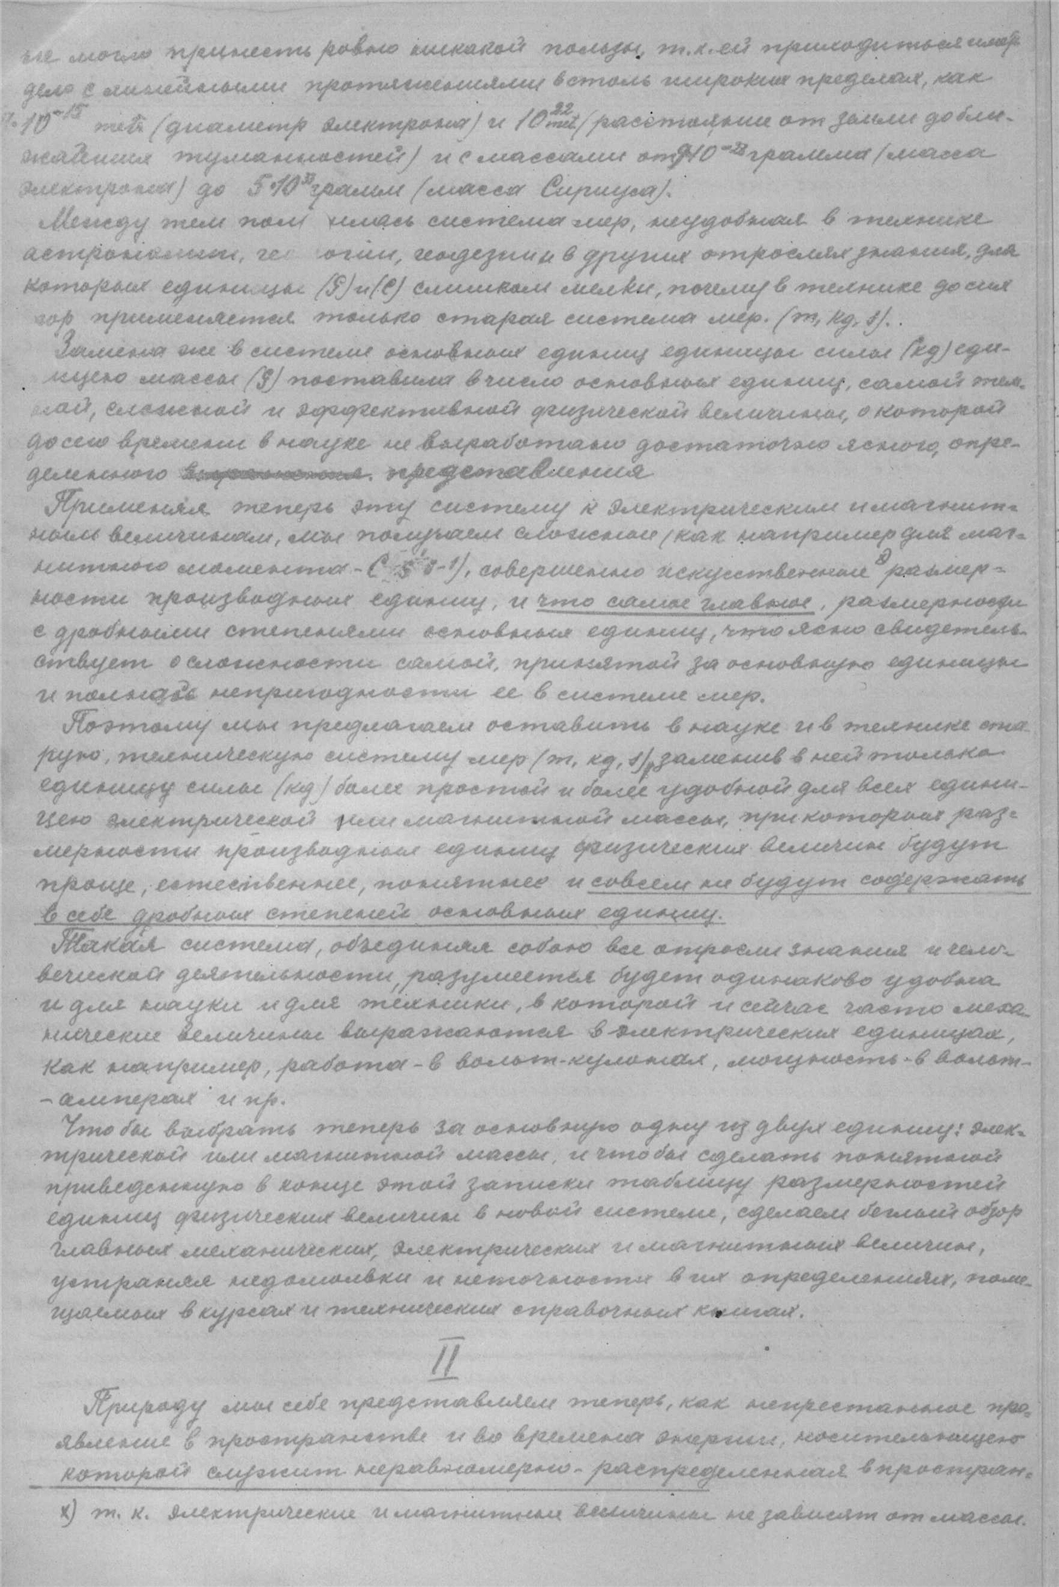 не могло принесть ровно никакой пользы, т.к. ей приходиться иметь
дело с линейными протяжениями в столь широких пределах, как
10⁻¹⁵ met. (диаметр электрона) и 10²² met (расстояние от земли до бли-
жайших туманностей) и с массами от 9·10⁻²⁸ грамма (масса
электрона) до 5·10³³ грамм (масса Сириуса).
Между тем пол илась система мер, неудобная в технике
астрономии, ге огии, геодезии и в других отрослях знания, для
которых единицы (g) и (c) слишком мелки, почему в технике до сих
пор применяется только старая система мер. (m, kg, s).
Замена же в системе основных единиц единицы силы (kg) еди-
ницею массы (g) поставила в число основных единиц, самой тем-
ной, сложной и эффективной физической величины, о которой
до сего времени в науке не выработано достаточно ясного, опре-
деленного представления
Применяя теперь эту систему к электрическим и магнит-
ным величинам, мы получаем сложные (как например для маг-
нитного момента - совершенно искусственные размер-
ности производных единиц, и что самое главное, размерности
с дробными степенями основных единиц, что ясно свидетель-
ствует о сложности самой, принятой за основную единицы
и полной непригодности ее в системе мер.
Поэтому мы предлагаем оставить в науке и в технике ста-
рую, техническую систему мер (m, kg, s), заменив в ней только
единицу силы (kg) более простой и более удобной для всех едини-
цею электрической или магнитной массы, при которых раз-
мерности производных единиц физических величин будут
проще, естественнее, понятнее и совсем не будут содержать
в себе дробных степеней основных единиц.
Такая система, объединяя собою все отросли знания и чело-
веческой деятельности, разумеется будет одинаково удобна
и для науки и для техники, в которой и сейчас часто меха-
нические величины выражаются в электрических единицах,
как например, работа - в вольт-кулонах, мощность - в вольт-
-амперах и пр.
Чтобы выбрать теперь за основную одну из двух единиц: элек-
трической или магнитной массы, и чтобы сделать понятной
приведенную в конце этой записки таблицу размерностей
единиц физических величин в новой системе, сделаем беглый обзор
главных механических, электрических и магнитных величин,
устраняя недомолвки и неточности в их определениях, поме-
щаемых в курсах и технических справочных книгах.
II
Природу мы себе представляем теперь, как непрестанное про-
явление в пространстве и во времени энергии, носительницею
которой служит неравномерно-распределенная в простран-
х) т. к. электрические и магнитные величины не зависят от массы.